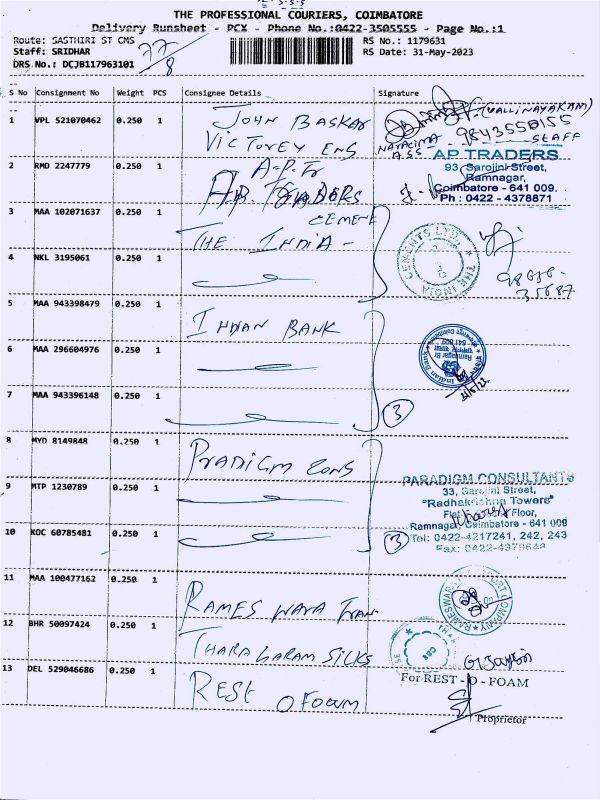 THE PROFESSIONAL COURIERS, COIMBATORE
Delivery Runsheet - PCX - Phone No.:0422-3505555 - Page No.:1
Route: SASTHIRI ST CMS
Staff: SRIDHAR
DRS No.: DCJB117963101
77/8
RS No.: 1179631
RS Date: 31-May-2023
S No Consignment No Weight PCS Consignee Details Signature
1 VPL 521070462 0.250 1 JOHN BASKAR
VICTOREY ENS
(VALLINAYAKAM)
9843550155
STAFF
2 RMD 2247779 0.250 1 A.P. Tr
AP TRADERS
AP TRADERS
93, Sarojini Street,
Ramnagar,
Coimbatore - 641 009.
Ph : 0422 - 4378871
3 MAA 102071637 0.250 1 THE INDIA - CEMENT
THE INDIA CEMENTS LTD
4 NKL 3195061 0.250 1
5 MAA 943398479 0.250 1 INDIAN BANK
6 MAA 296604976 0.250 1
Indian Bank
Ramnagar Br
641 009
7 MAA 943396148 0.250 1
3
8 MYD 8149848 0.250 1 PRADIGM CONS
9 MTP 1230789 0.250 1
PARADIGM CONSULTANTS
33, Sarojini Street,
"Radhakrishna Towers"
Floor,
Ramnagar, Coimbatore - 641 009
Tel: 0422-4217241, 242, 243
Fax: 0422-4379644
10 KOC 60785481 0.250 1
3
11 MAA 100477162 0.250 1 RAMES WARA Tran
12 BHR 50097424 0.250 1 THARAGARAM SILKS
13 DEL 529046686 0.250 1 REST O FOAM
For REST - O - FOAM
Proprietor